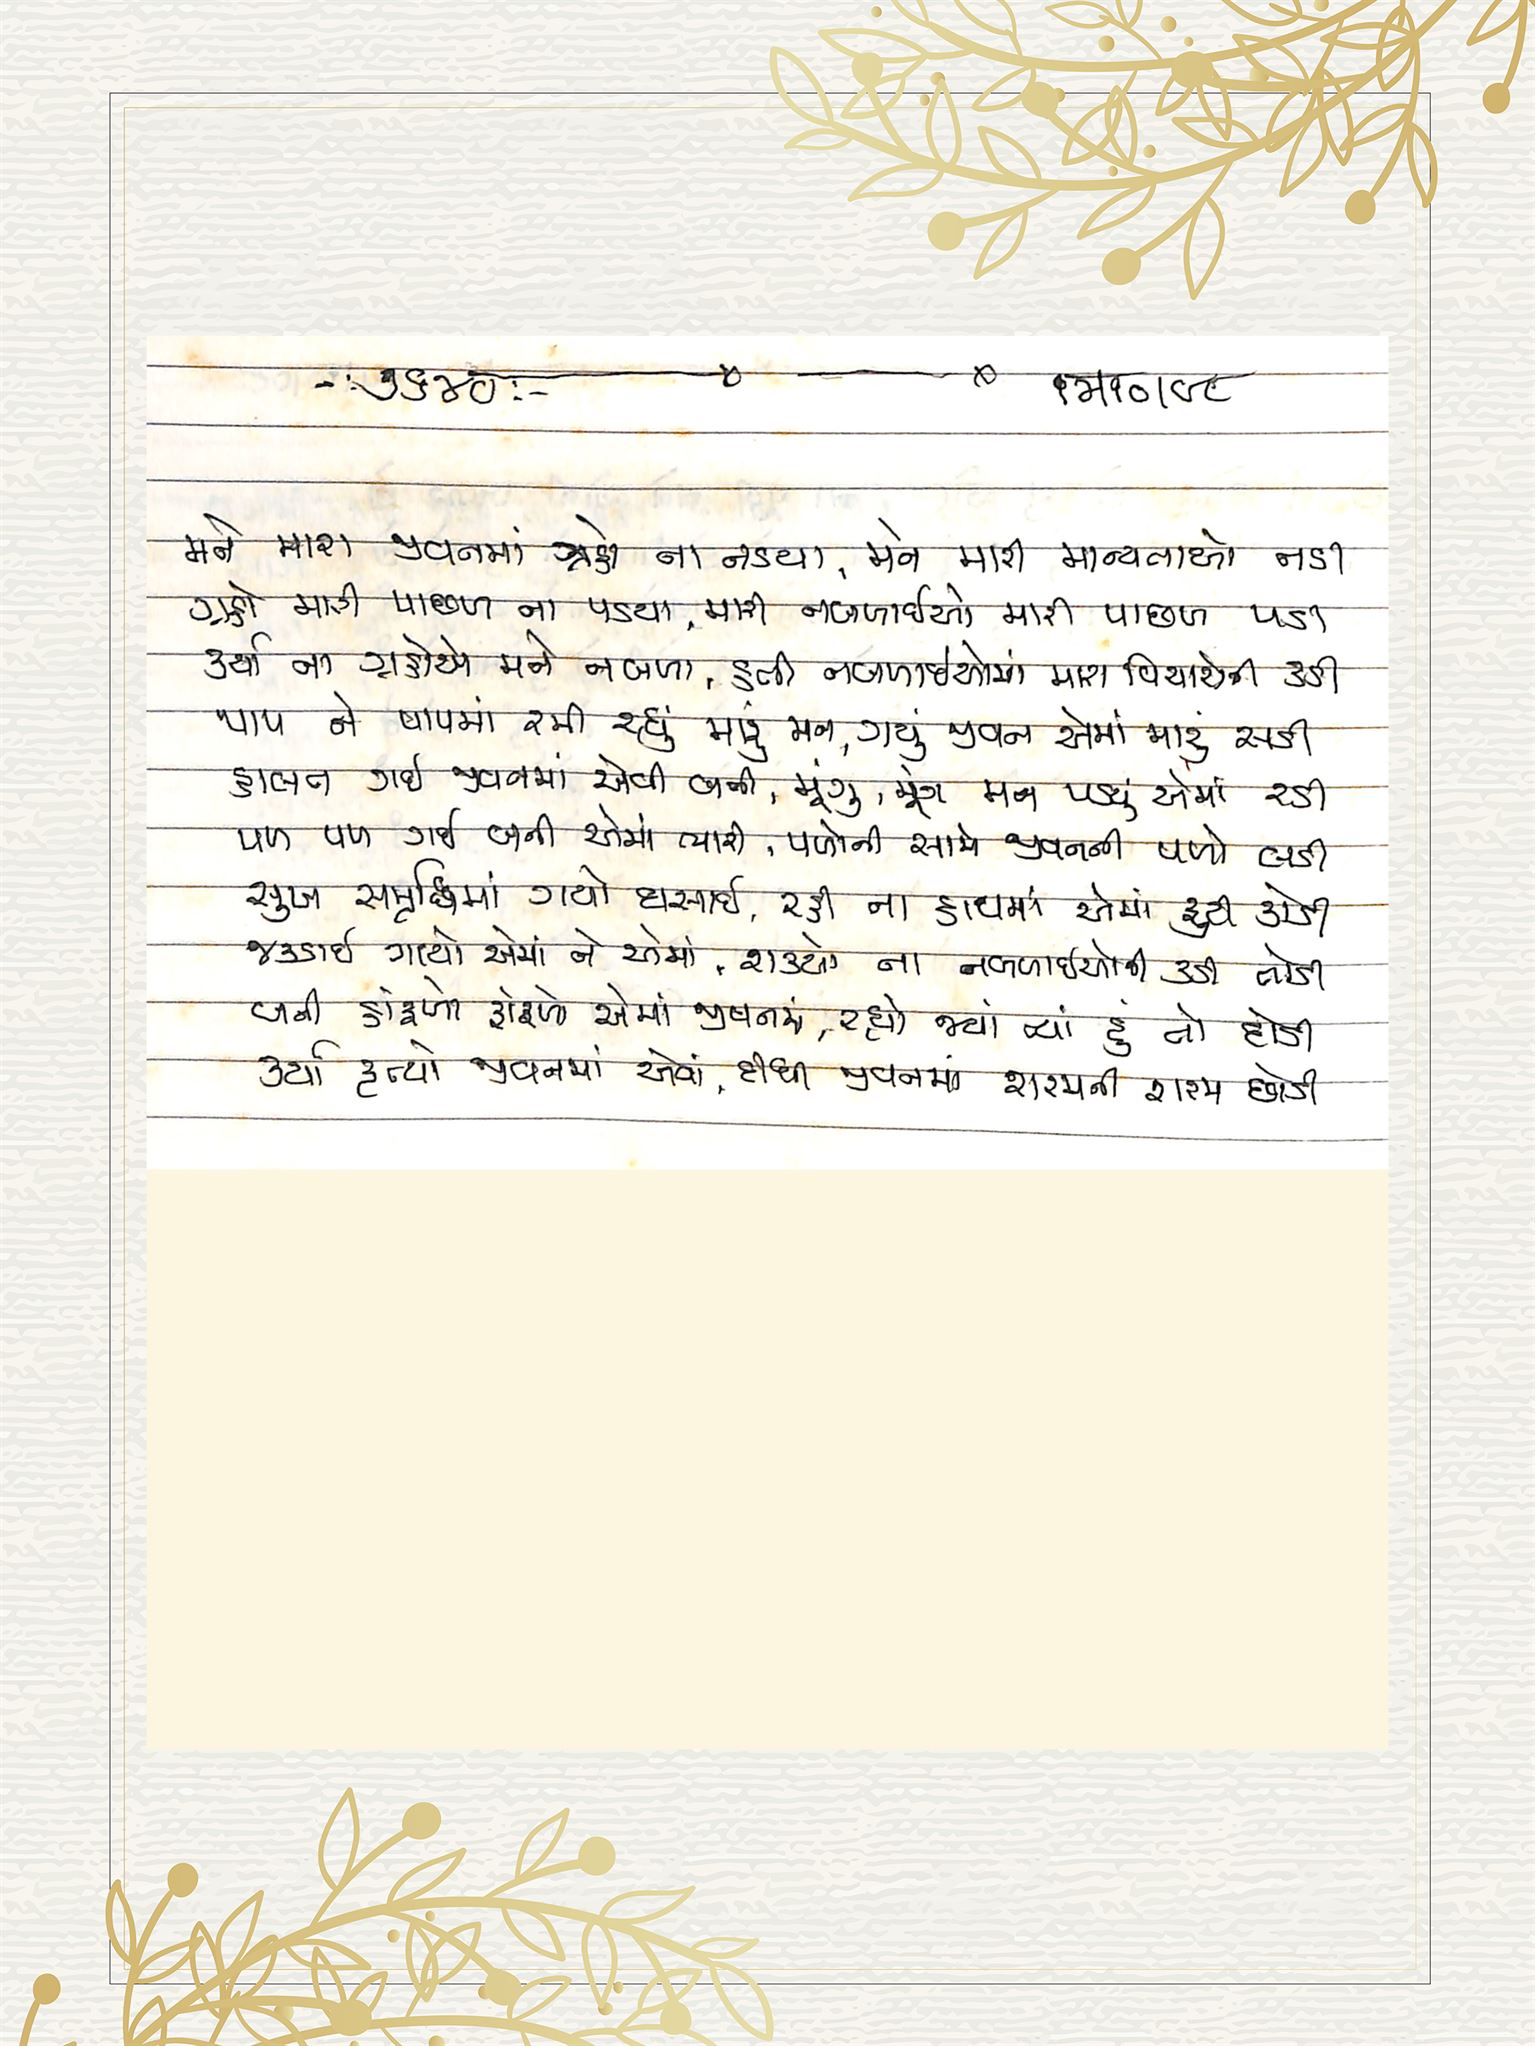 -: ૭૬૪૦ :-
મને મારા જીવનમાં ગ્રહો ના નડયા, મને મારી માન્યતાઓ નડી
ગ્રહો મારી પાછળ ના પડયા, મારી નબળાઈઓ મારી પાછળ પડી
કર્યા ના ગ્રહોએ મને નબળા, હતી નબળાઈઓમાં મારા વિચારોની કડી
પાપ ને પાપમાં રમી રહ્યું મારું મન, ગયું જીવન એમાં મારું સડી
હાલત ગઈ જીવનમાં એવી બની, મૂંગુ, મૂંગુ મન પડયું એમાં રડી
પળ પળ ગઈ બની એમાં ભારી, પળોની સામે જીવનની પળો લડી
સુખ સમૃદ્ધિમાં ગયો ઘસાઈ, રહી ના હાથમાં એમાં ફુટી કોડી
જકડાઈ ગયો એમાં ને એમાં, શક્યો ના નબળાઈઓની કડી તોડી
બની હાંફળો ફાંફળો એમાં જીવનમાં, રહ્યો જ્યાં ત્યાં હું તો દોડી
કર્યા કૃત્યો જીવનમાં એવાં, દીધી જીવનમાં શરમની શરમ છોડી